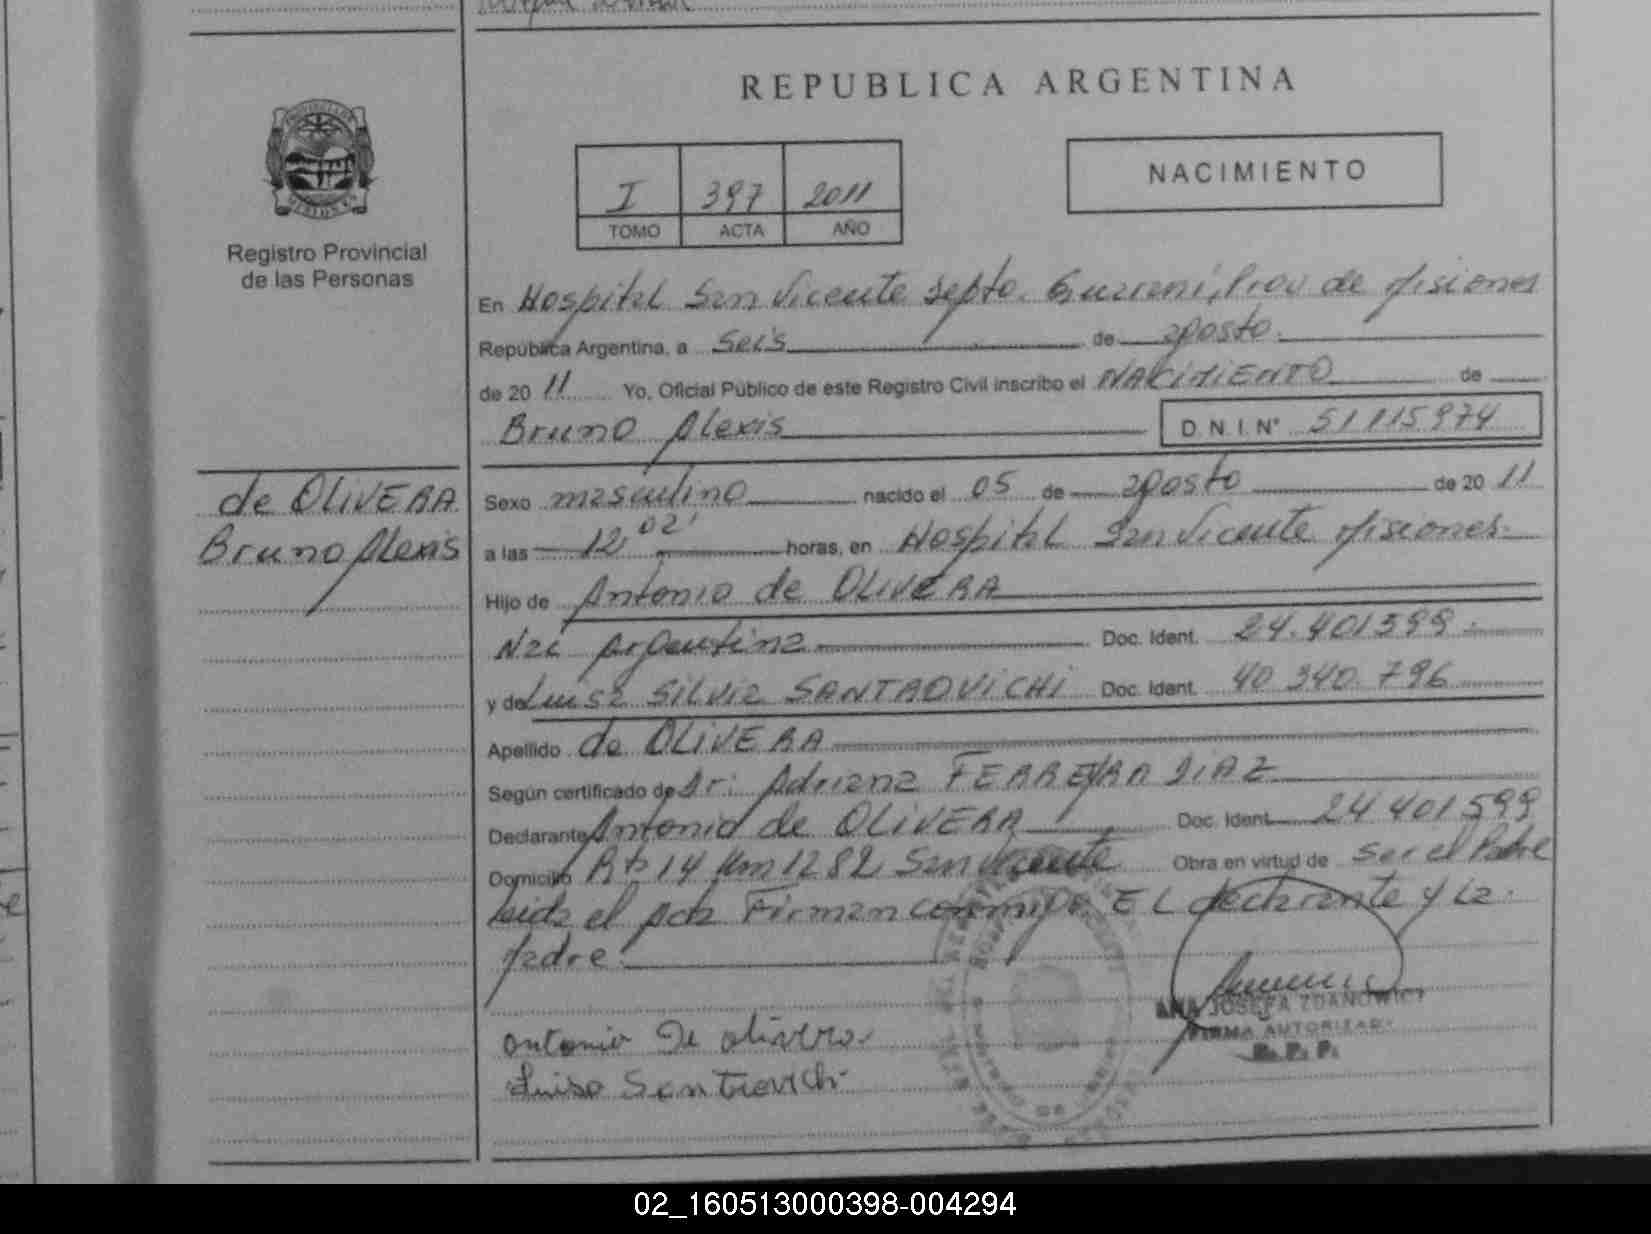 REPUBLICA ARGENTINA
NACIMIENTO
I 397 2011
TOMO ACTA AÑO
Registro Provincial
de las Personas
En Hospital San Vicente Depto. Guarani, Prov de Misiones
Republica Argentina, a seis de agosto
de 20 11 Yo, Oficial Público de este Registro Civil inscribo el NACIMIENTO de
Bruno Alexis D.N.I.N° 51115974
de OLIVERA
Bruno Alexis
Sexo masculino nacido el 05 de agosto de 20 11
a las 12,02' horas, en Hospital San Vicente Misiones
Hijo de Antonio de OLIVERA
Nac Argentina Doc. Ident. 24.401599
y de Luisa Silvia SANTROVICHI Doc. Ident. 40 340.796
Apellido de OLIVERA
Según certificado de Dr: Adriana FERREYRA DIAZ
Declarante Antonio de OLIVERA Doc. Ident. 24 401599
Domicilio Rta 14 Km 1282 San Vicente Obra en virtud de ser el Padre
leida el Acta Firman conmigo EL declarante y La
Madre
Antonio De olivera
Luisa Santrovichi
ANA JOSEFA ZDANOWICZ
FIRMA AUTORIZADA
R. P. P.
02_160513000398-004294